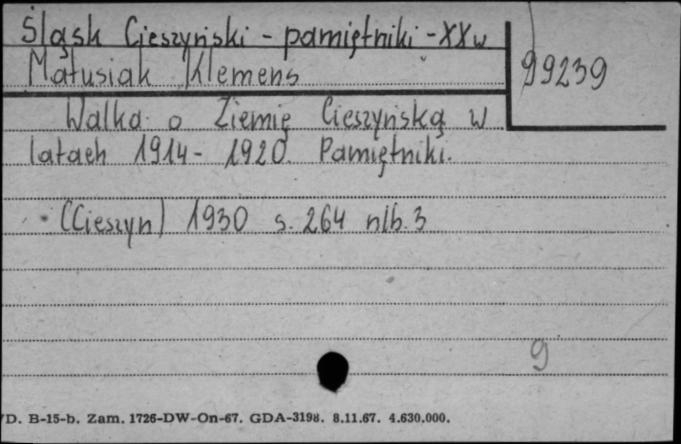 Śląsk Cieszyński - pamiętniki - XX w
Matusiak Klemens
99239
Walka o Ziemię Cieszyńską w
latach 1914 - 1920. Pamiętniki.
(Cieszyn) 1930 s. 264 nlb. 3
9
/D. B-15-b. Zam. 1726-DW-On-67. GDA-3198. 8.11.67. 4.630.000.